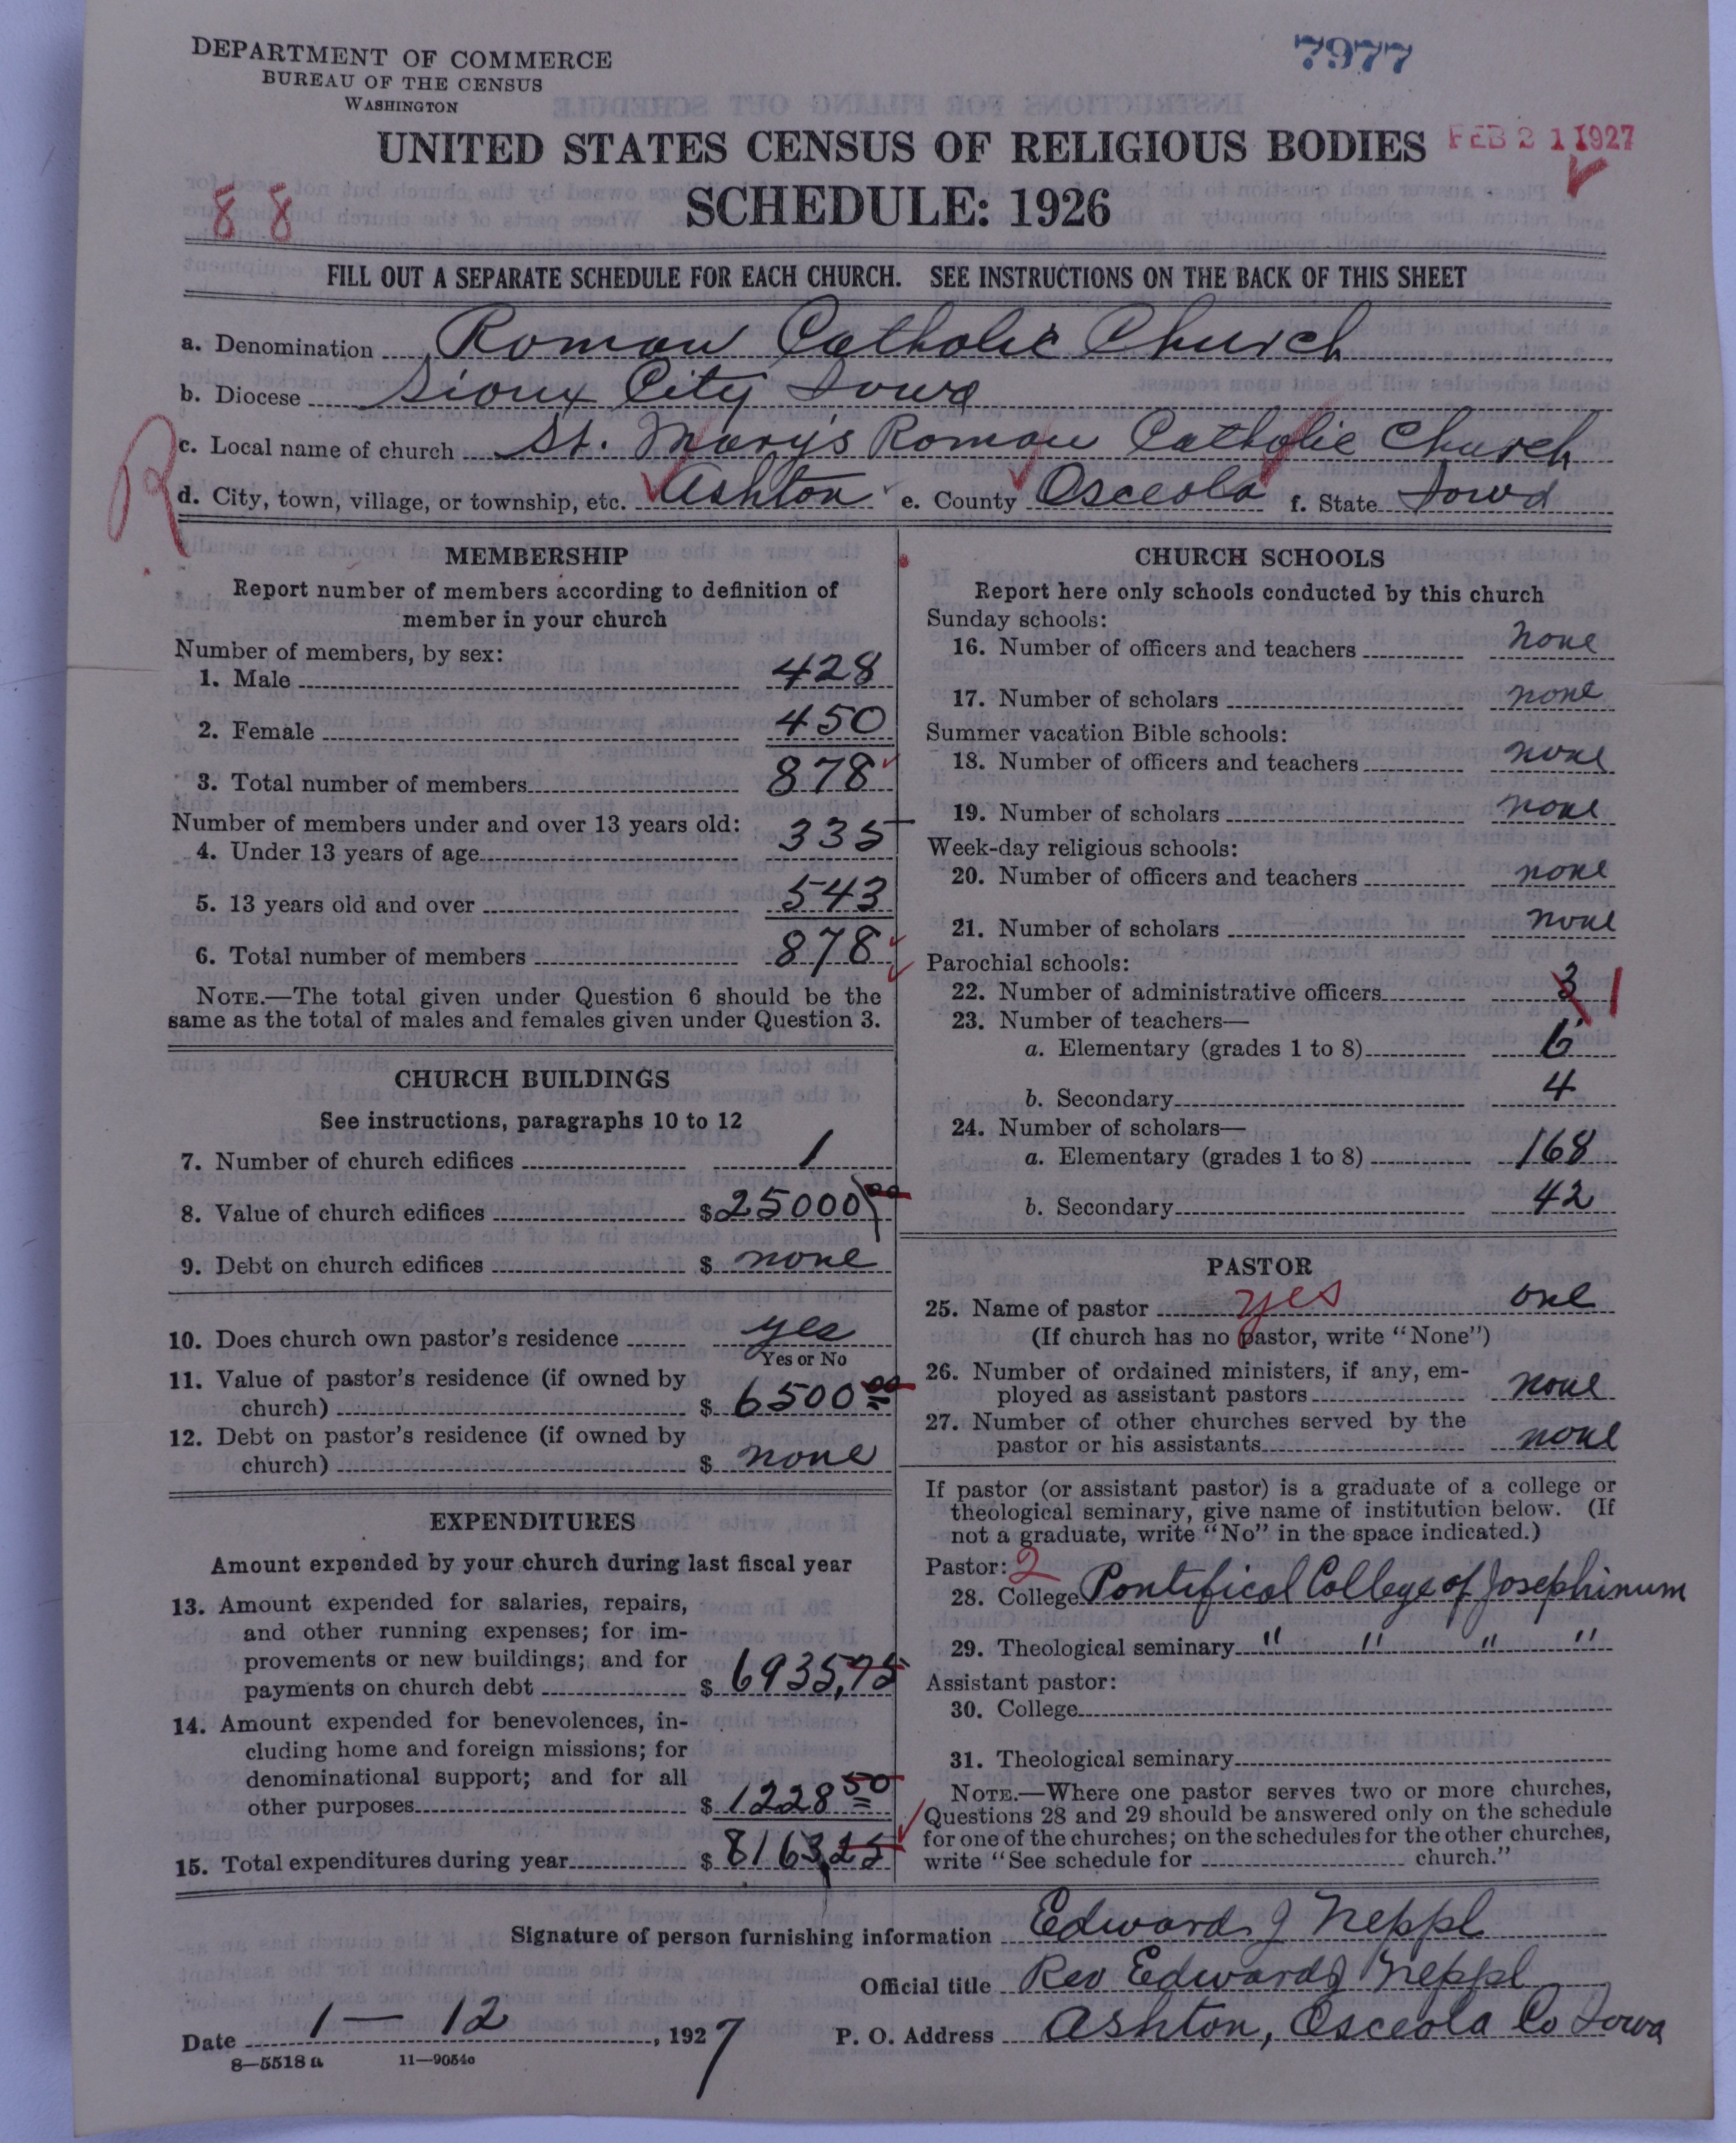 DEPARTMENT OF COMMERCE
BUREAU OF THE CENSUS
WASHINGTON
7977
UNITED STATES CENSUS OF RELIGIOUS BODIES
FEB 21 1927
SCHEDULE: 1926
88
FILL OUT A SEPARATE SCHEDULE FOR EACH CHURCH. SEE INSTRUCTIONS ON THE BACK OF THIS SHEET
a. Denomination Roman Catholic Church
b. Diocese Sioux City Iowa
R
c. Local name of church St. Mary's Roman Catholic Church
d. City, town, village, or township, etc. Ashton e. County Osceola f. State Iowa
MEMBERSHIP
Report number of members according to definition of
member in your church
Number of members, by sex:
1. Male 428
2. Female 450
3. Total number of members 878
Number of members under and over 13 years old:
4. Under 13 years of age 335
5. 13 years old and over 543
6. Total number of members 878
NOTE.—The total given under Question 6 should be the
same as the total of males and females given under Question 3.
CHURCH BUILDINGS
See instructions, paragraphs 10 to 12
7. Number of church edifices 1
8. Value of church edifices $25000 00
9. Debt on church edifices $ none
10. Does church own pastor's residence yes
Yes or No
11. Value of pastor's residence (if owned by
church) $ 6500 00
12. Debt on pastor's residence (if owned by
church) $ none
EXPENDITURES
Amount expended by your church during last fiscal year
13. Amount expended for salaries, repairs,
and other running expenses; for im-
provements or new buildings; and for
payments on church debt $ 6935,75
14. Amount expended for benevolences, in-
cluding home and foreign missions; for
denominational support; and for all
other purposes $ 1228 50
15. Total expenditures during year $ 8163,25
CHURCH SCHOOLS
Report here only schools conducted by this church
Sunday schools:
16. Number of officers and teachers none
17. Number of scholars none
Summer vacation Bible schools:
18. Number of officers and teachers none
19. Number of scholars none
Week-day religious schools:
20. Number of officers and teachers none
21. Number of scholars none
Parochial schools:
22. Number of administrative officers 3 1
23. Number of teachers—
a. Elementary (grades 1 to 8) 6
b. Secondary 4
24. Number of scholars—
a. Elementary (grades 1 to 8) 168
b. Secondary 42
PASTOR
25. Name of pastor yes one
(If church has no pastor, write "None")
26. Number of ordained ministers, if any, em-
ployed as assistant pastors none
27. Number of other churches served by the
pastor or his assistants none
If pastor (or assistant pastor) is a graduate of a college or
theological seminary, give name of institution below. (If
not a graduate, write "No" in the space indicated.)
Pastor: 2
28. College Pontifical College of Josephinum
29. Theological seminary " " " "
Assistant pastor:
30. College
31. Theological seminary
NOTE.—Where one pastor serves two or more churches,
Questions 28 and 29 should be answered only on the schedule
for one of the churches; on the schedules for the other churches,
write "See schedule for church."
Signature of person furnishing information Edward J Neppl
Official title Rev Edward J Neppl
Date 1 — 12, 1927 P. O. Address Ashton, Osceola Co Iowa
8—5518 a 11—9054c